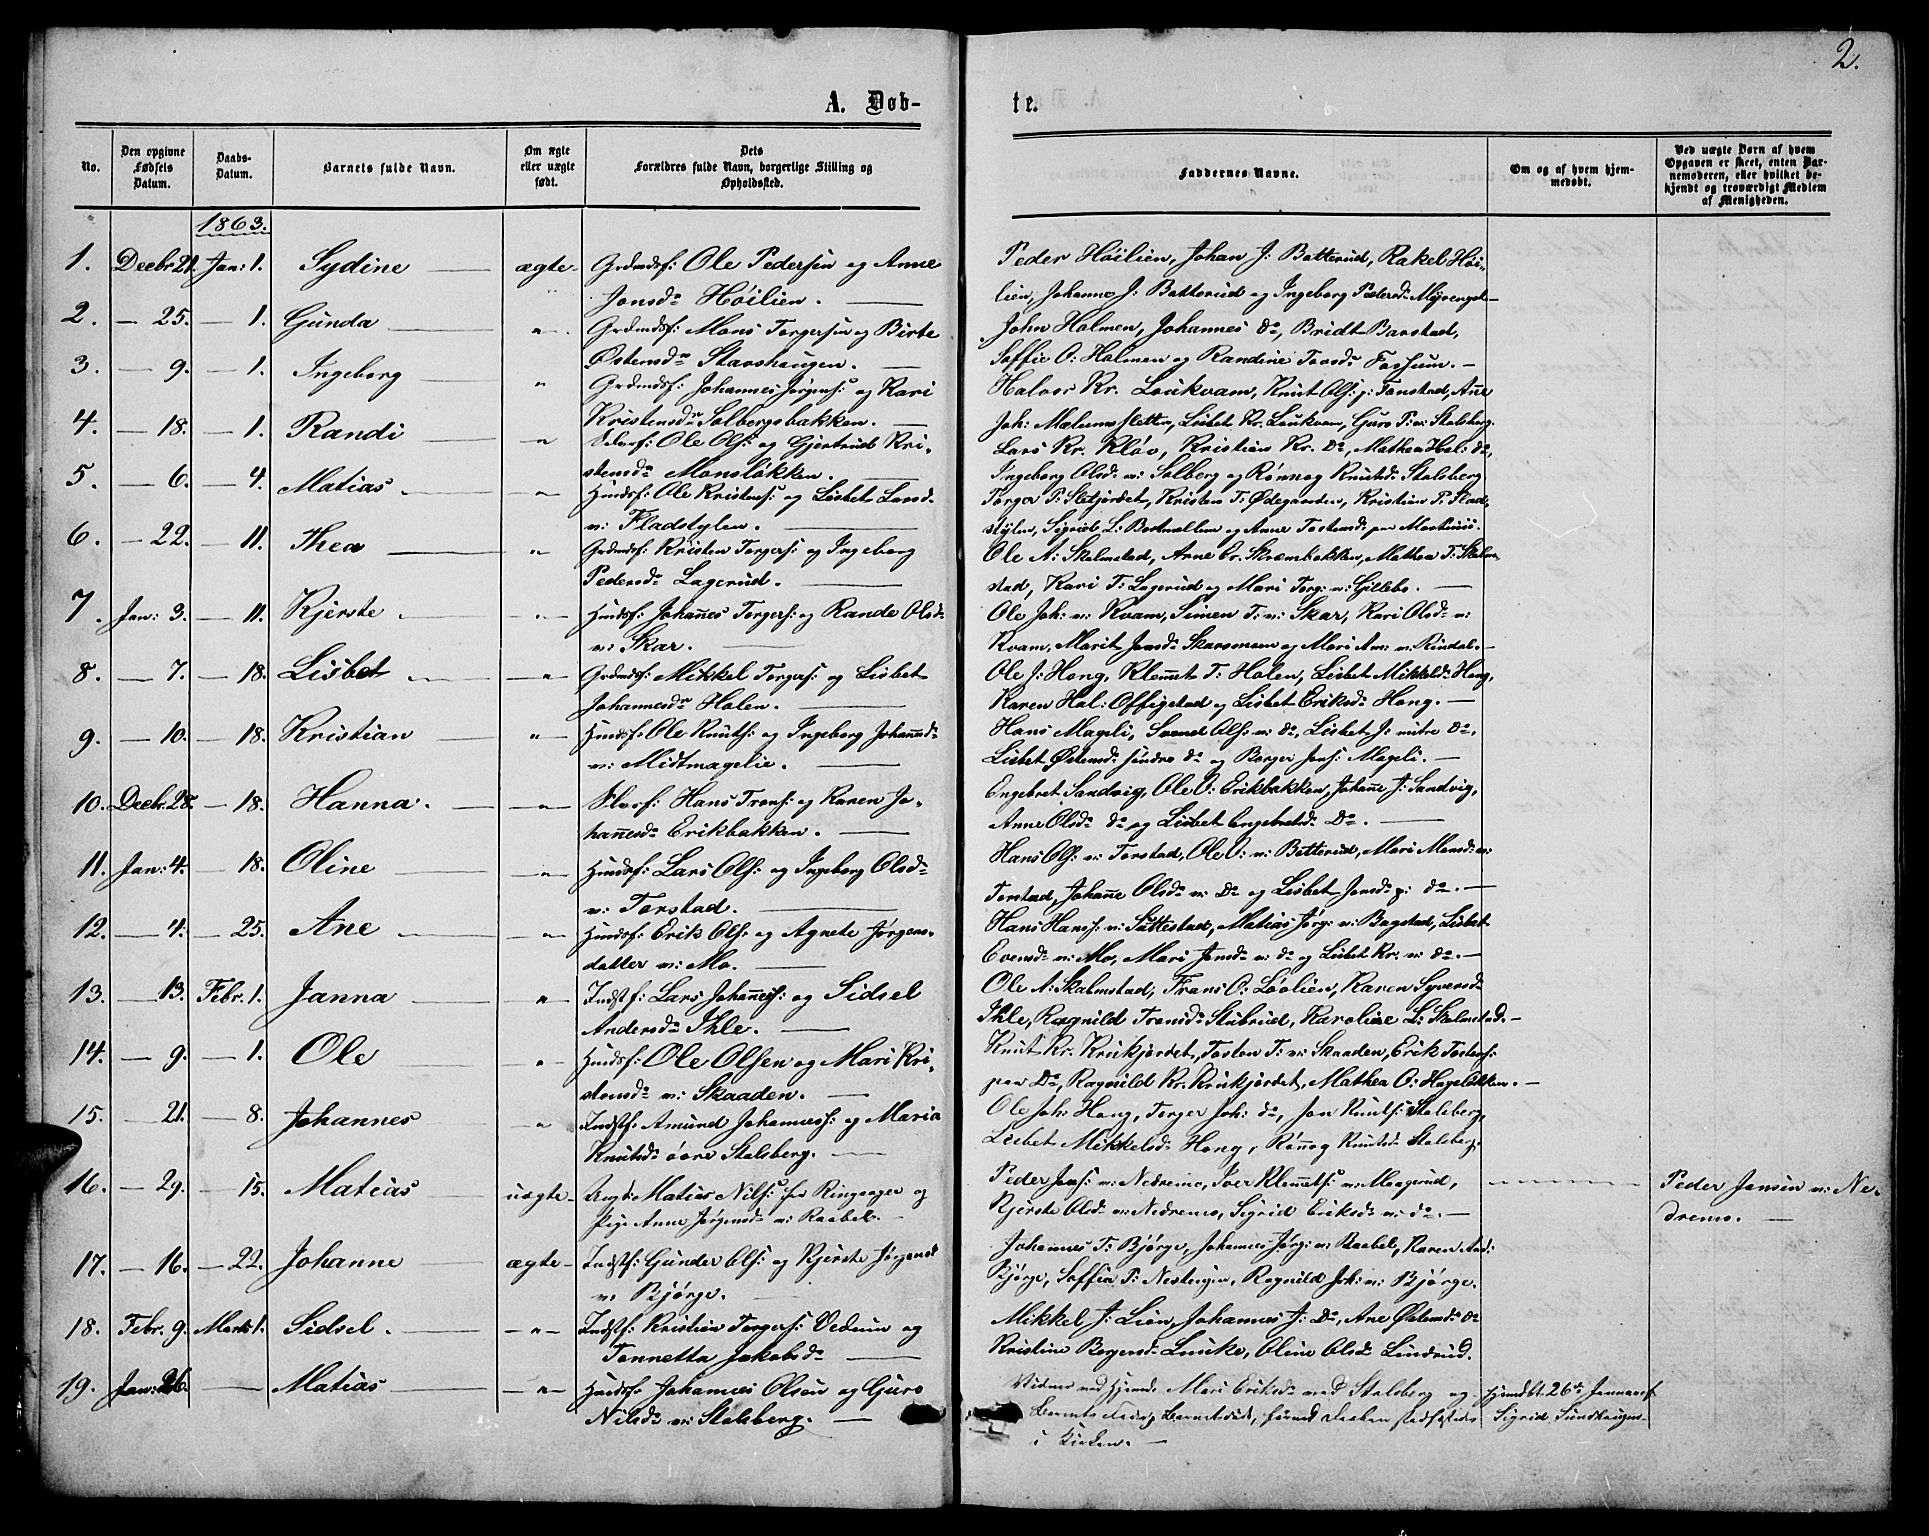 2.
A. Døb-
te.
No.
Den opgivne Fødsels Datum.
Daabs-Datum.
Barnets fulde Navn.
Om ægte eller uægte født.
Dets Forældres fulde Navn, borgerlige Stilling og Opholdssted.
Faddernes Navne.
Om og af hvem hjemmedøbt.
Ved uægte Børn af hvem Opgaven er skeet, enten Barnemoderen, eller hvilket bekjendt og troværdigt Medlem af Menigheden.
1863.
1. Decbr. 21. Jan: 1. Sydine ægte Grdmdsf: Ole Pedersen og Anne
Jonsdr Høilien.
Peder Høilien, Johan J: Batterud, Rakel Høi-
lien, Johanne J: Batterud og Ingeborg Pedersdr Myrenget
2. 25. 1. Gunda " Grdmdsf: Mons Torgersen og Birte
Østensdr Stavshaugen.
John Holmen, Johannes do, Bridt Barstad,
Soffie O: Holmen og Randine Fossum.
3. 9. 1. Ingeborg " Grdmdsf: Johannes Jørgens: og Kari
Kristensdr Solbergsbakken.
Halvor Kr. Loukvam, Knut Ols: p: Torstad, Ane
Joh: Mælumsletten, Lisbet Kr. Loukvam, Guro P: v: Stalsberg.
4. 18. 1. Randi " Selvsf: Ole Ols: og Gjertrud Kri-
stensdr Monsløkken.
Lars Kr. Kløv, Kristian Kr. Do, Mathea Hal: do,
Ingeborg Olsdr v: Solberg og Rønnog Knutsdr Stalsberg
5. 6. 4. Matias " Huusf: Ole Kristens: og Lisbet Larsd
v: Fladstylen.
Torger P: Sletjordet, Kristen T: Ødegaarden, Kristian P: Flad-
stylen, Sigrid L: og Anne Tostensdr
6. 22. 11. Thea " Grdmdsf: Kristen Torgers: og Ingeborg
Pedersdr Lagerud.
Ole A: Skalmstad, Arne Skræmbakken, Mathea T: Skalm-
stad, Kari T: Lagerud og Mari Torg: v: Gillebo.
7. Jan: 3. 11. Kjerste " Huusf: Johanes Torgers: og Rande Olsdr
v: Skar.
Ole Joh: v: Kvam, Simen T: v: Skar, Kari Olsdr v:
Kvam, Marit Jonsdr Skarsmoen og Mari v: Rindal.
8. 7. 18. Lisbet " Grdmdsf: Mikkel Torgers: og Lisbet
Johannesdr Holen.
Ole J: Hong, Klemet T: Holen, Lisbet Mikkelsdr Hong,
Karen Hal: Offigstad og Lisbet Eriksdr Hong.
9. 10. 18. Kristian " Huusf: Ole Knuts: og Ingeborg Johannesdr
v: Midtmagelie.
Hans Mageli, Svend Ols: v: do, Lisbet J: mitre do,
Lisbet Østensdr søndre do og Berger Jons: Mageli.
10. Decbr. 28. 18. Hanna. " Selvsf: Hans Trons: og Karen Jo-
hanesdr Erikbakken.
Engebret Sandvig, Ole O: Erikbakken, Johane J: Sandvig,
Anne Olsdr do og Lisbet Engebretsdr Do.
11. Jan: 4. 18. Oline " Huusf: Lars Ols: og Ingeborg Olsdr
v: Torstad.
Hans Ols: v: Torstad, Ole O: v: Batterud, Mari Monsdr v:
Torstad, Johane Olsdr v: Do og Lisbet Jonsdr p: do.
12. 4. 25. Ane " Huusf: Erik Ols: og Agnete Jørgens-
datter v: Mo.
Hans Hans: v: Suttestad, Matias Jørg: v: Bagstad, Lisbet
Evensdr v: Mo, Mari Jonsdr v: do og Lisbet Kr. v: do.
13. 13. Febr. 1. Janna " Indstf: Lars Johannes: og Sidsel
Andersdr Ihle.
Ole A: Skalmstad, Frans O: Løolien, Karen Syversdr
Ihle, Ragnild Tronsdr Stubrud, Karoline L: Skalmstad.
14. 9. 1. Ole " Huusf: Ole Olsen og Mari Kri-
stensdr v: Skaaden.
Knut Kr. Krukjordet, Tosten T: v: Skaaden, Erik Tostens:
paa Do, Ragnild Kr. Krukjordet, Mathea O: Hageløkken.
15. 21. 8. Johannes " Indstf: Amund Johanness: og Maria
Knutsdr øvre Stalsberg.
Ole Joh: Hong, Torger Joh: do, Jon Knuts: Stalsberg,
Lisbet Mikkelsdr Hong, Rønnog Knutsdr Stalsberg.
16. 29. 15. Matias uægte Ungk: Matias Nils: fra Ringsager og
Pige Anne Jørgensdr v: Raabel.
Peder Jens: v: Nedremo, Iver Klemets: v: Maagerud,
Kjerste Olsdr v: Nedremo, Sigrid Eriksdr v: do.
Peder Jensen v: Ne-
dremo.
17. 16. 22. Johanne ægte Indstf: Gunder Ols: og Kjerste Jørgensd
v: Bjørge.
Johannes T: Bjørge, Johannes Jørg: v: Raabel, Karen And:
Bjørge, Soffia P: Nestengen, Ragnild Joh: v: Bjørge.
18. Febr. 9. Marts 1. Sidsel. " Indstf: Kristian Torgers: Vedum og
Tonnetta Jakobsdr
Mikkel J: Lien, Johannes J: Do, Ane Østensdr do
Kristine Bergersdr Lunke, Oline Olsdr Lindrud.
19. Jan: 26. Matias " Huusf: Johannes Olsen og Guro
Nilsdr v: Stalsberg.
Vidner ved Hjemd: Mari Eriksdr Stalsberg og
Barnets Fader,
i Kirken.
Hjemdbt. 26de Januar af
Sigrid Sundhaugen